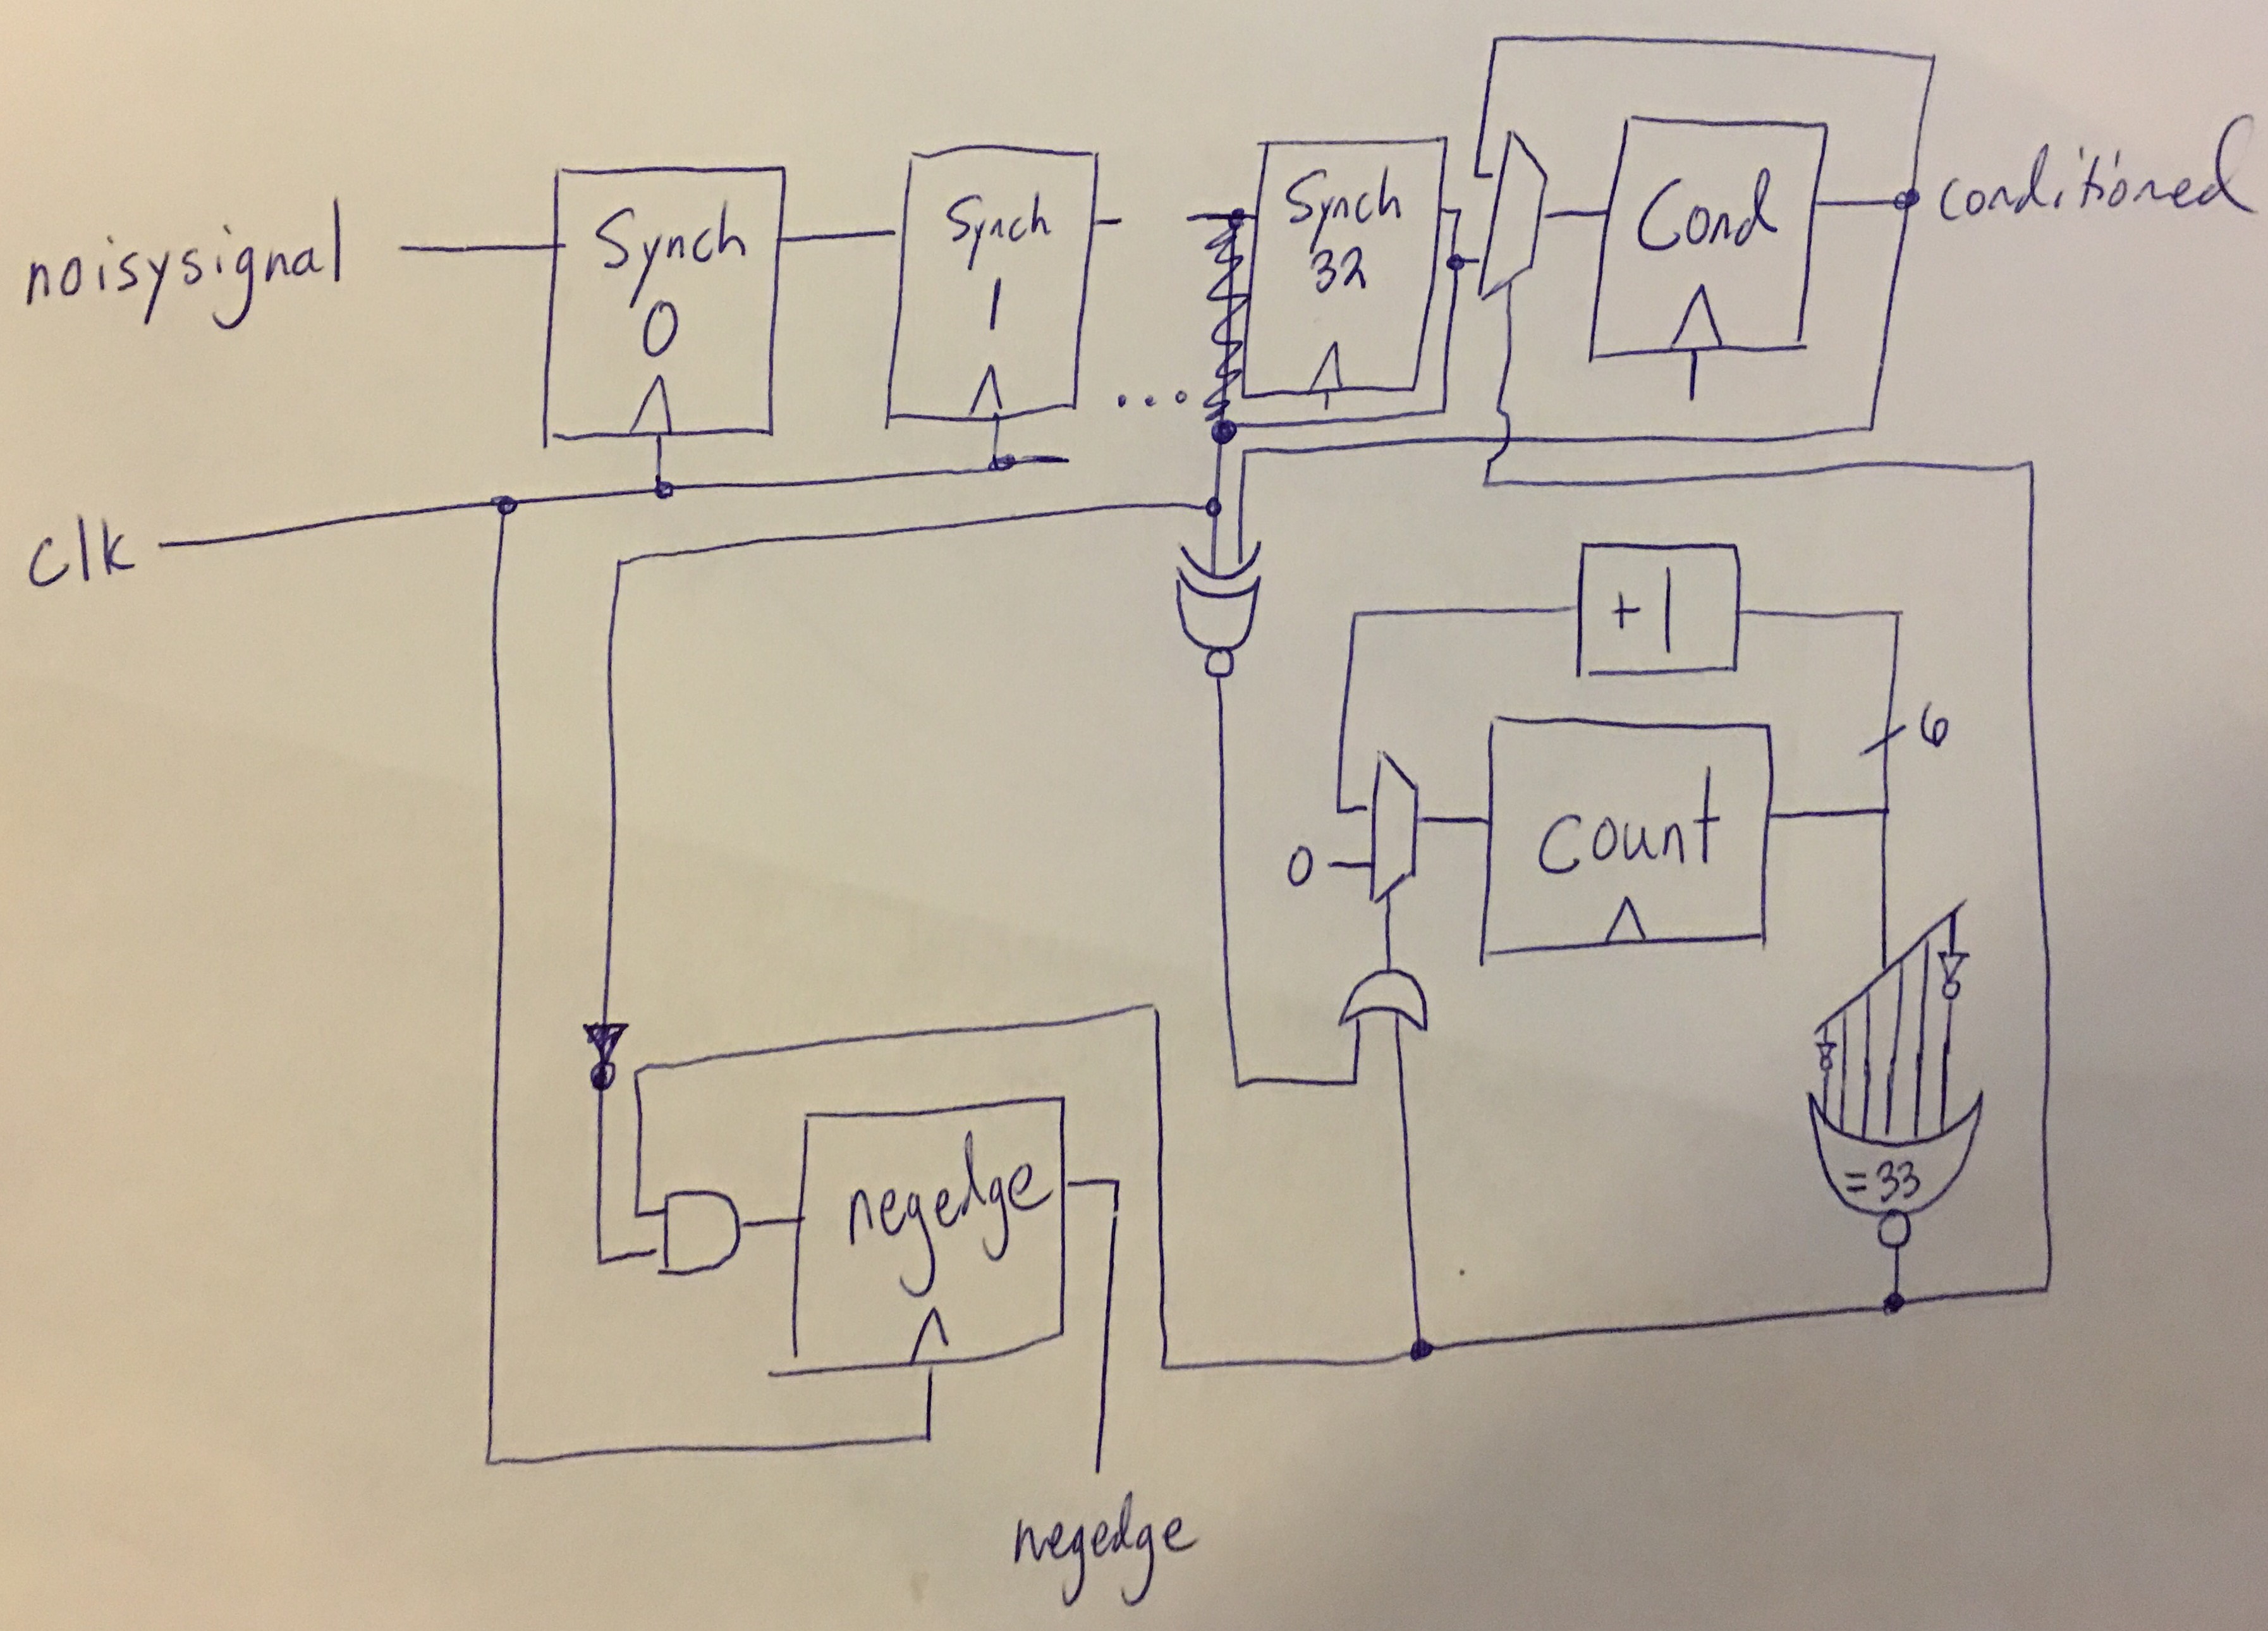 noisysignal
Synch
0
Synch
1
...
Synch
32
Cond
conditioned
clk
+1
6
0
count
= 33
negedge
negedge